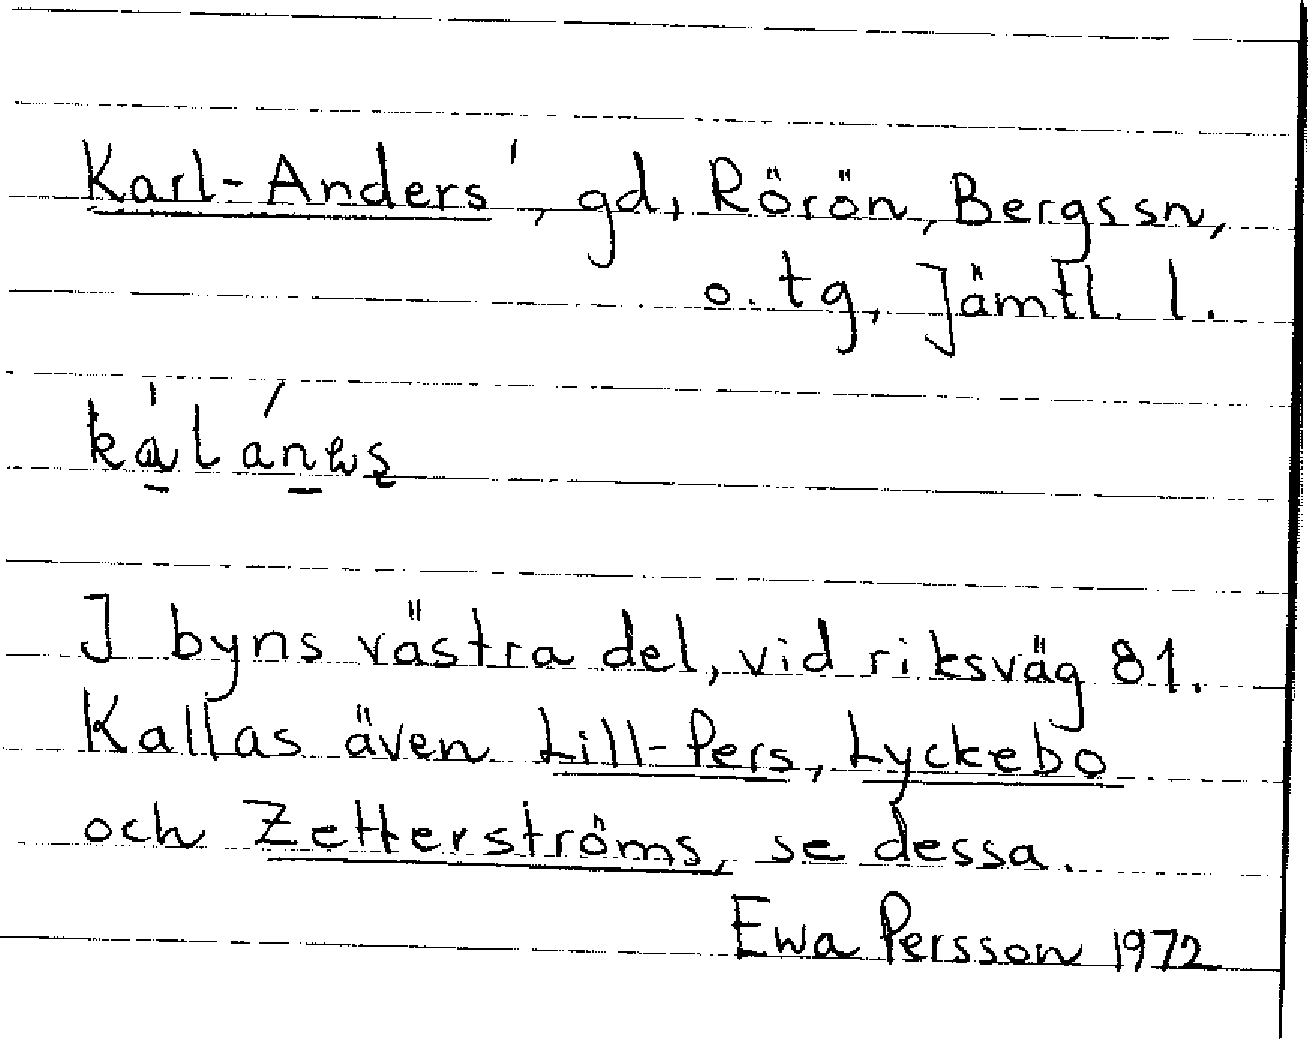 Karl-Anders', gd, Rörön, Bergs sn,
o. tg, Jämtl. l.
I byns västra del, vid riksväg 81.
Kallas även Lill-Pers, Lyckebo
och Zetterströms, se dessa.
Ewa Persson 1972